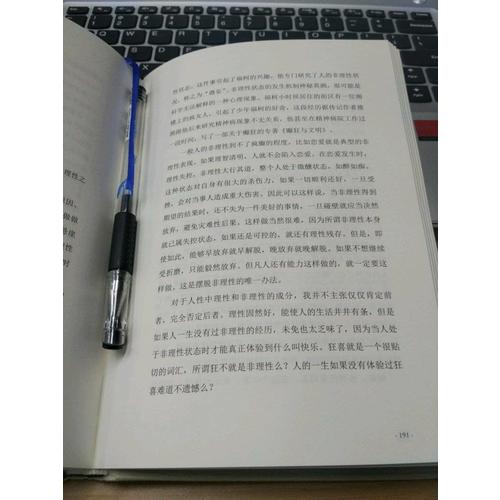 理性之
因、
做做
悬崖
性
时
性状态，这件事引起了福柯的兴趣，他专门研究了人的非理性状
况，称之为“愚妄”。非理性状态的发生机制神秘莫测，很可能是
科学无法解释的一种心理现象。福柯小时候居住的街区有一位阁
楼上的疯女人，引起了少年福柯的好奇，这段经历据传记作者推
测跟他后来研究精神病现象不无关系，他甚至在精神病院工作过
一段时间，写了一部关于癫狂的专著《癫狂与文明》。
一般人的非理性到不了疯癫的程度，比如恋爱就是典型的非
理性表现。如果理智清明，人就不会陷入恋爱。在恋爱发生时，
理性失控，非理性大行其道，整个人处于微醺状态，如醉如痴。
这种状态对自身有很大的杀伤力，如果一切顺利还好，一旦受
挫，会对当事人造成重大伤害。因此可以这样说，当非理性得到
期望的结果时，还不失为一件美好的事情，一旦碰壁就应当决然
放弃，避免灾难性后果。这样做当然很难，因为所谓非理性本身
就已属失控状态，如果还是可控的，就还有理性残存。但是，即
使如此，能够早放弃就早解脱，晚放弃就晚解脱。如果不想继续
受折磨，只能毅然放弃。但凡人还有能力这样做的，就一定要这
样做，这是摆脱非理性的唯一办法。
对于人性中理性和非理性的成分，我并不主张仅仅肯定前
者，完全否定后者。理性固然好，能使人的生活井井有条，但是
如果人一生没有过非理性的经历，未免也太乏味了，因为当人处
于非理性状态时才能真正体验到什么叫快乐。狂喜就是一个很贴
切的词汇，所谓狂不就是非理性么？人的一生如果没有体验过狂
喜难道不遗憾么？
· 191 ·